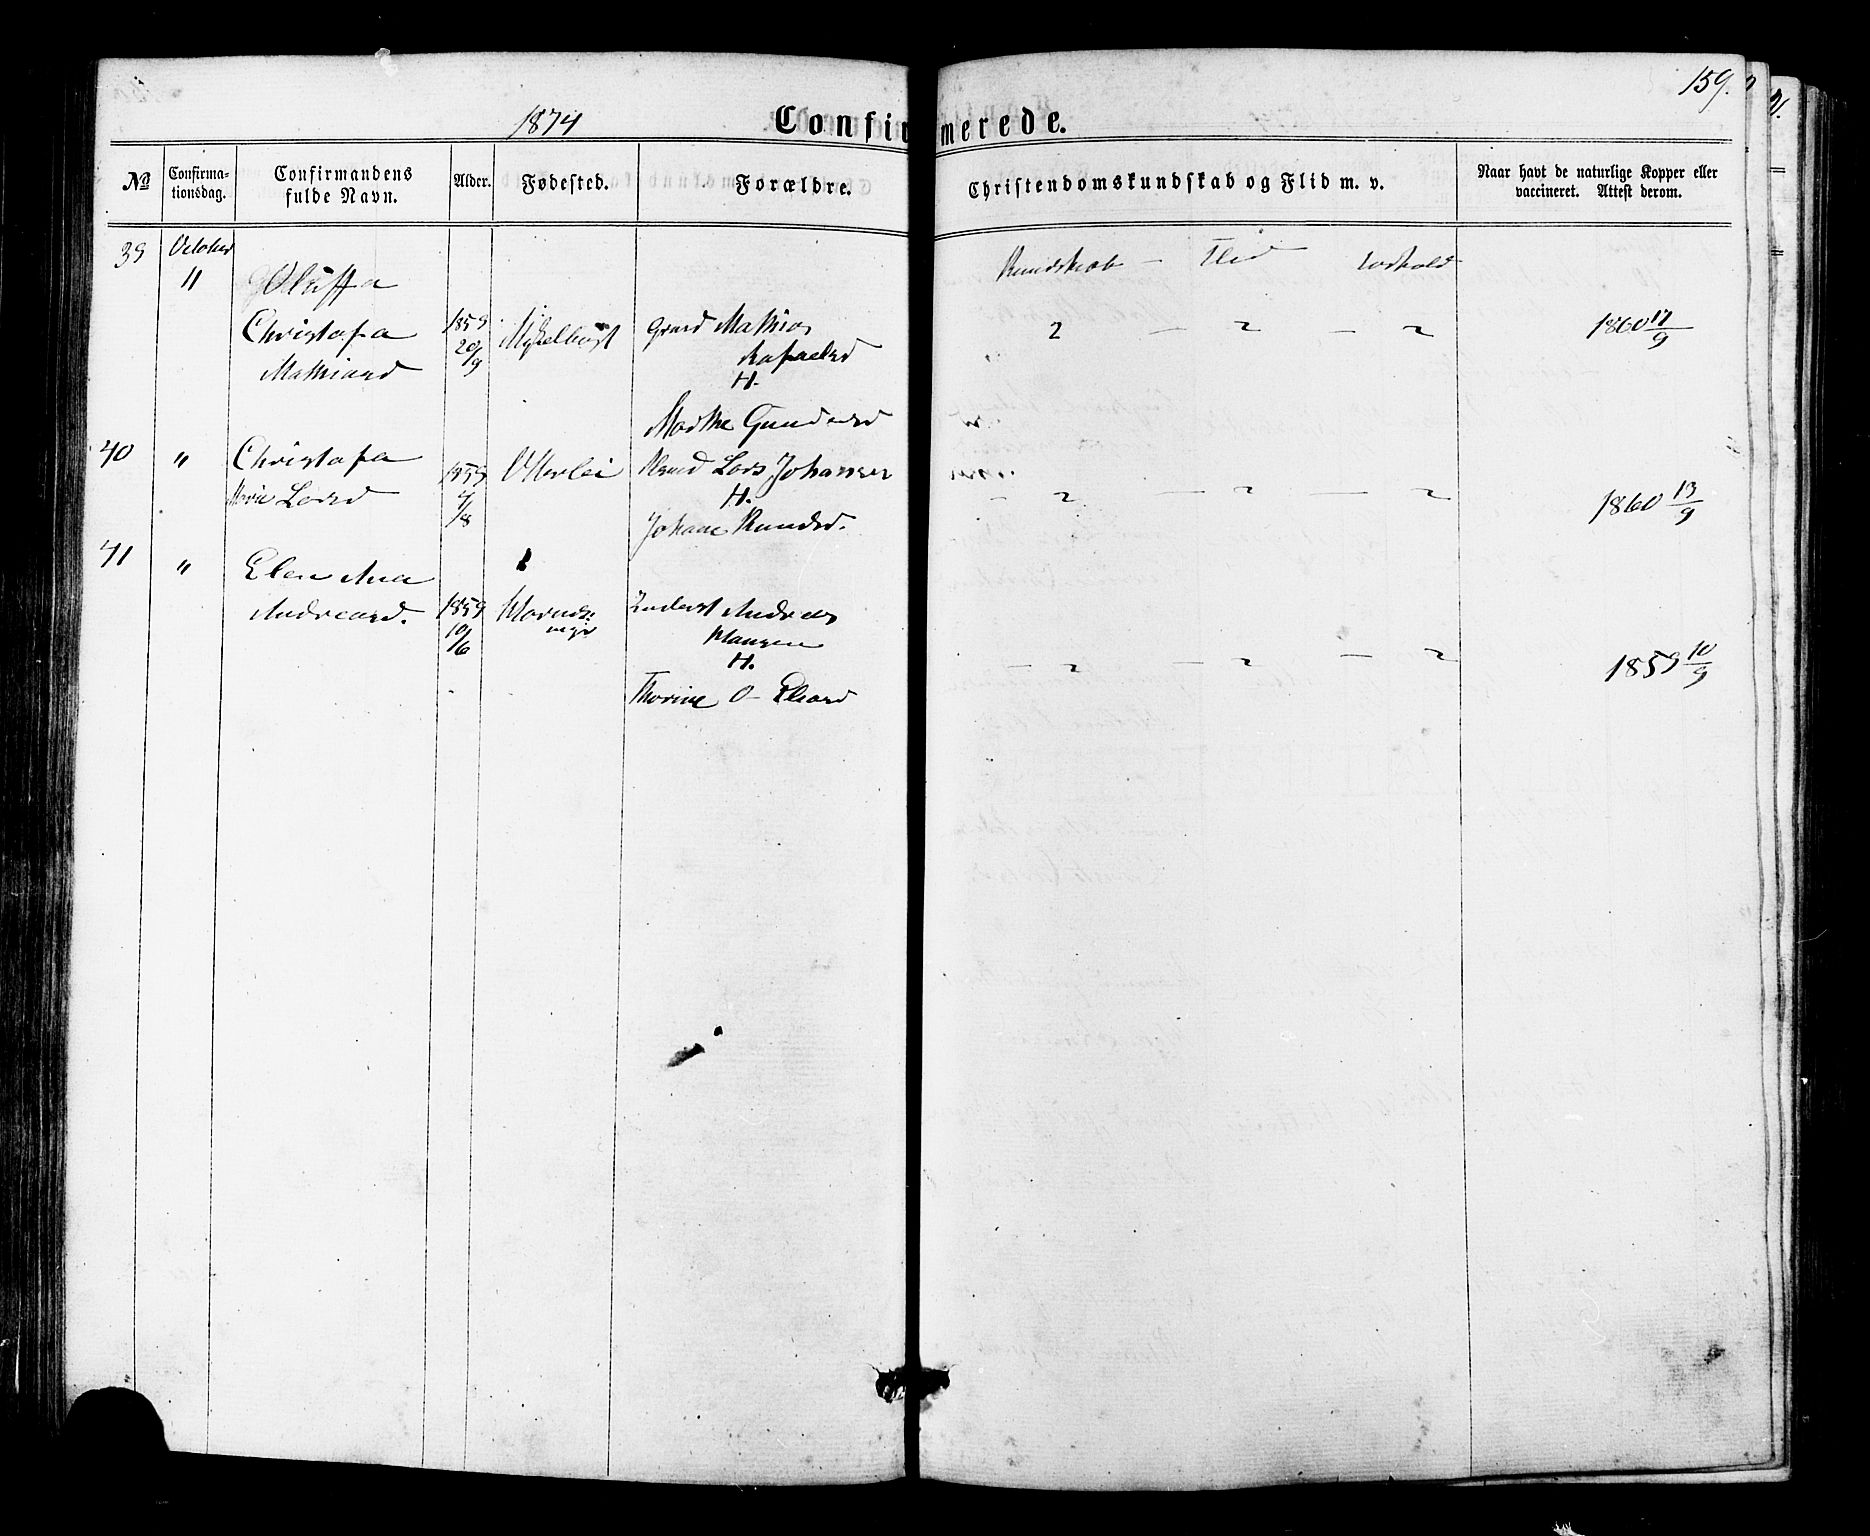 159.
1874 Confirmerede.
№ Confirma-tionsdag. Confirmandens fulde Navn. Alder. Fødested. Forældre. Christendomskundskab og Flid m. v. Naar havt de naturlige Kopper eller vaccineret. Attest derom.
39 October
Kundskab – Flid
11 Oluffa
Christofa 1859 Myklebust Gmd Mathias 2 – 2 – 2 1860 17/9
20/9 Rafaelsd
Mathiasd H.
Marthe Gundersd
40 " Christofa 1859 Otterlei Lars Johansen
Marie Larsd 4/8 H. – 2 – 2 – 2 1860 13/9
Johane Knudsd.
41 " Elen Ana
Andreasd. 1859 Inderst Andreas
10/6 Hansen
H. – 2 – 2 – 2 1859 10/9
Thorine O– Eliasd